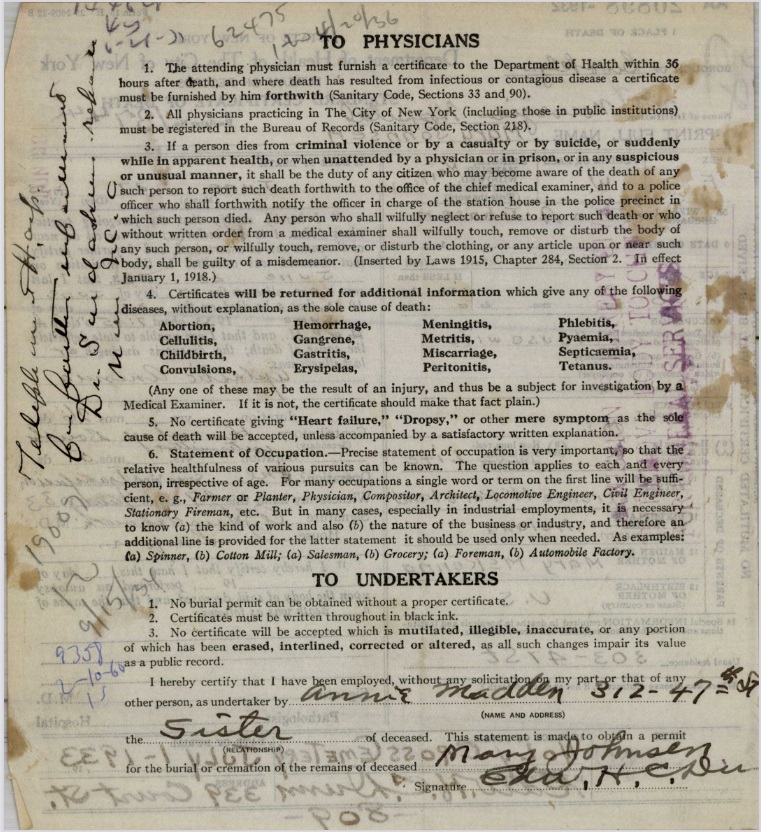 62475
4/20/36
TO PHYSICIANS
1. The attending physician must furnish a certificate to the Department of Health within 36
hours after death, and where death has resulted from infectious or contagious disease a certificate
must be furnished by him forthwith (Sanitary Code, Sections 33 and 90).
2. All physicians practicing in The City of New York (including those in public institutions)
must be registered in the Bureau of Records (Sanitary Code, Section 218).
3. If a person dies from criminal violence or by a casualty or by suicide, or suddenly
while in apparent health, or when unattended by a physician or in prison, or in any suspicious
or unusual manner, it shall be the duty of any citizen who may become aware of the death of any
such person to report such death forthwith to the office of the chief medical examiner, and to a police
officer who shall forthwith notify the officer in charge of the station house in the police precinct in
which such person died. Any person who shall wilfully neglect or refuse to report such death or who
without written order from a medical examiner shall wilfully touch, remove or disturb the body of
any such person, or wilfully touch, remove, or disturb the clothing, or any article upon or near such
body, shall be guilty of a misdemeanor. (Inserted by Laws 1915, Chapter 284, Section 2. In effect
January 1, 1918.)
4. Certificates will be returned for additional information which give any of the following
diseases, without explanation, as the sole cause of death:
Abortion, Hemorrhage, Meningitis, Phlebitis,
Cellulitis, Gangrene, Metritis, Pyaemia,
Childbirth, Gastritis, Miscarriage, Septicaemia,
Convulsions, Erysipelas, Peritonitis, Tetanus.
(Any one of these may be the result of an injury, and thus be a subject for investigation by a
Medical Examiner. If it is not, the certificate should make that fact plain.)
5. No certificate giving "Heart failure," "Dropsy," or other mere symptom as the sole
cause of death will be accepted, unless accompanied by a satisfactory written explanation.
6. Statement of Occupation.—Precise statement of occupation is very important, so that the
relative healthfulness of various pursuits can be known. The question applies to each and every
person, irrespective of age. For many occupations a single word or term on the first line will be suffi-
cient, e. g., Farmer or Planter, Physician, Compositor, Architect, Locomotive Engineer, Civil Engineer,
Stationary Fireman, etc. But in many cases, especially in industrial employments, it is necessary
to know (a) the kind of work and also (b) the nature of the business or industry, and therefore an
additional line is provided for the latter statement it should be used only when needed. As examples:
(a) Spinner, (b) Cotton Mill; (a) Salesman, (b) Grocery; (a) Foreman, (b) Automobile Factory.
TO UNDERTAKERS
1. No burial permit can be obtained without a proper certificate.
2. Certificates must be written throughout in black ink.
3. No certificate will be accepted which is mutilated, illegible, inaccurate, or any portion
of which has been erased, interlined, corrected or altered, as all such changes impair its value
as a public record.
9358
2-10-66
15
I hereby certify that I have been employed, without any solicitation on my part or that of any
other person, as undertaker by Annie Madden 312-47th St
(NAME AND ADDRESS)
the Sister of deceased. This statement is made to obtain a permit
(RELATIONSHIP)
for the burial or cremation of the remains of deceased Mary Johnsen
Signature